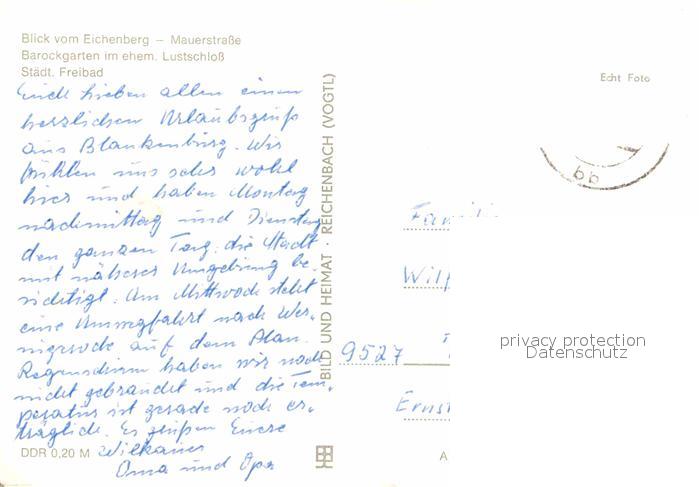 Blick vom Eichenberg – Mauerstraße
Barockgarten im ehem. Lustschloß
Städt. Freibad
Echt Foto
Euch lieben allen einen
herzlichen Urlaubsgruß
aus Blankenburg. Wir
fühlen uns sehr wohl
hier und haben Montag
nachmittag und Dienstag
den ganzen Tag die Stadt
mit näherer Umgebung be-
sichtigt. Am Mittwoch steht
eine Umwegfahrt nach Wer-
nigerode auf dem Plan.
Regenschirm haben wir noch
nicht gebraucht und die Tem-
peratur ist gerade noch er-
träglich. Es grüßen Eure
Wilkauer
Oma und Opa
DDR 0,20 M
BILD UND HEIMAT · REICHENBACH (VOGTL)
bb
Famili
Wilf
9527
Ernst
A
privacy protection
Datenschutz